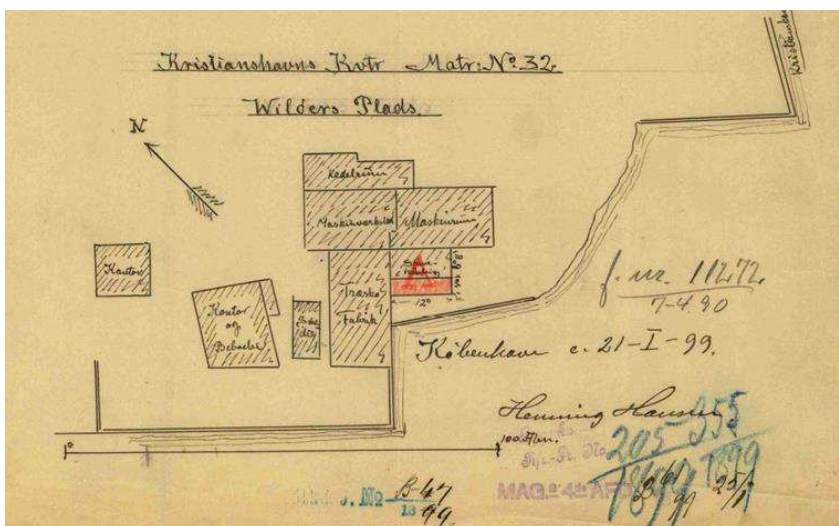 Kristianshavns Kvtr Matr: No 32.
Wilders Plads.
N
Kedelrum
Maskinværksted
Maskinrum
Kontor
Kontor
og
Beboelse
Træsko
Fabrik
12°
f. nr. 112.72.
7-4.90
København d. 21-I-99.
Henning Hansen.
0
100 Alen.
205-355
1899
MAG.s 4de AFD
25/1
No B-47
18 99.